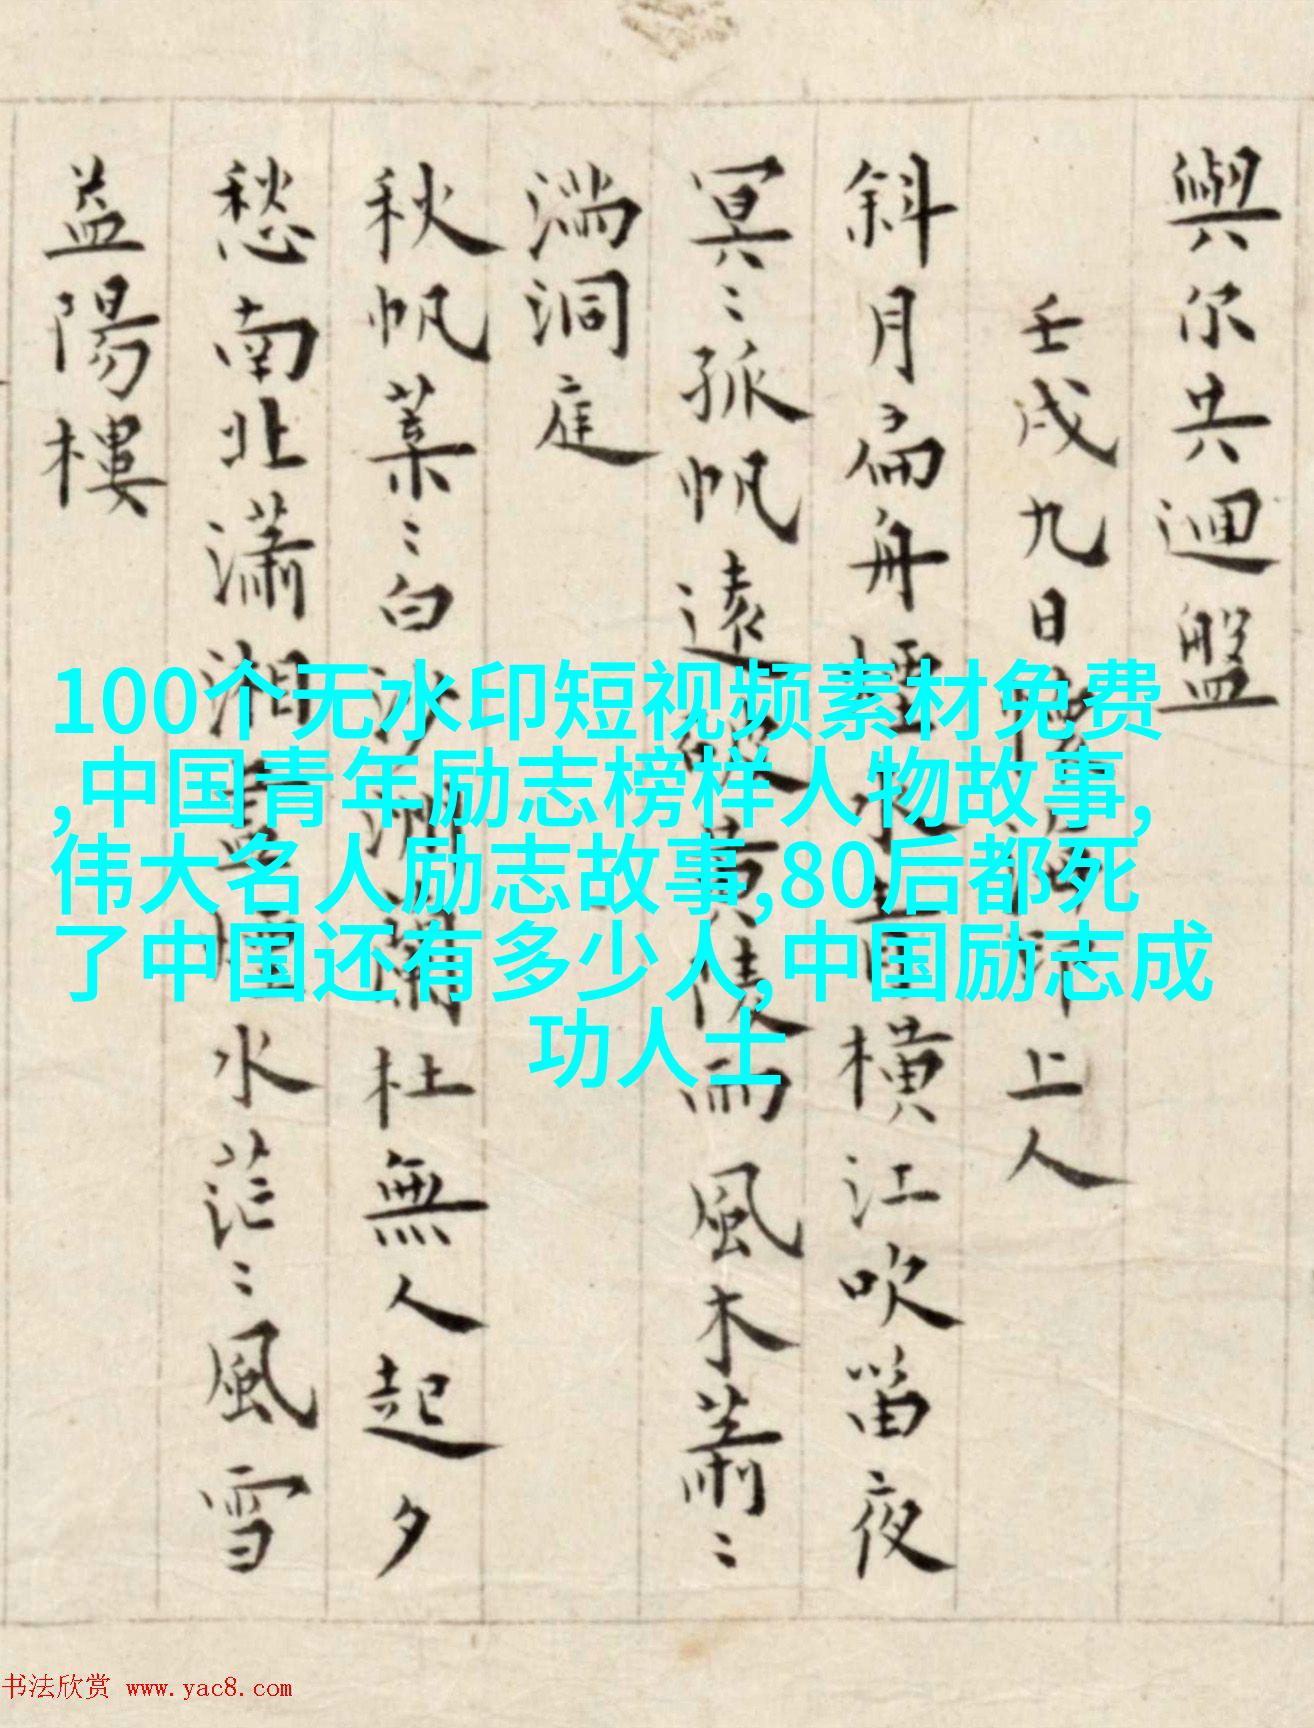 與尔共迴盤
壬戌九日 上人
斜月扁舟 橫江吹笛夜
冥〻孤帆遠 黃陵雨風木蕭〻
湍洞庭
秋帆葉〻白沙 杜無人起夕
愁南北瀟湘 水茫〻風雪
益陽樓
100个无水印短视频素材免费
,中国青年励志榜样人物故事,
伟大名人励志故事,80后都死
了中国还有多少人,中国励志成
功人士
书法欣赏 www.yac8.com